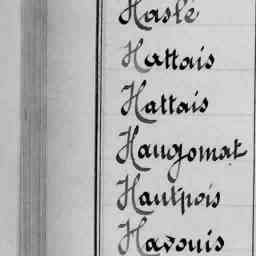 Haslé
Hattais
Hattais
Haugomat
Hautbois
Havouis